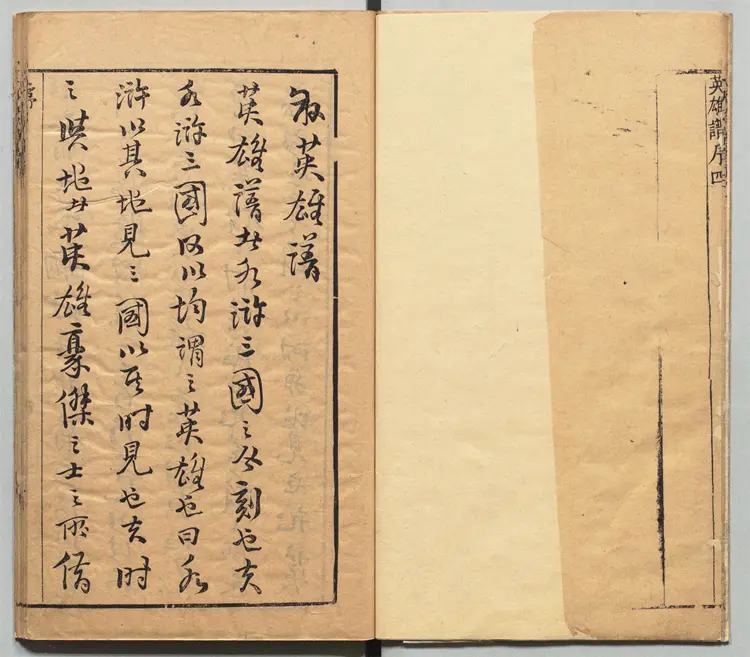 英雄譜序四
叙英雄譜
英雄譜者水滸三國之合刻也夫
水滸三國何以均謂之英雄也曰水
滸以其地見三國以其时見也夫时
之與地者英雄豪傑之士之所借
序